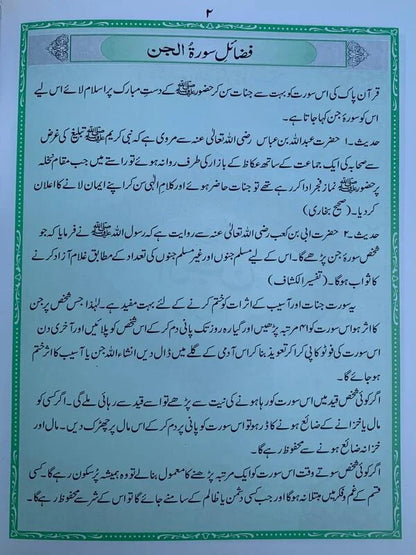 ۲
فضائل سورۃ الجن
قرآن پاک کی اس سورت کو بہت سے جنات سن کر حضور ﷺ کے دستِ مبارک پر اسلام لائے اس لیے
اس کو سورۂ جن کہا جاتا ہے۔
حدیث۔۱ حضرت عبداللہ بن عباس رضی اللہ تعالیٰ عنہ سے مروی ہے کہ نبی کریم ﷺ تبلیغ کی غرض
سے صحابہ کی ایک جماعت کے ساتھ عکاظ کے بازار کی طرف روانہ ہوئے تو راستے میں جب مقام نخلہ
پر حضور ﷺ نماز فجر ادا کر رہے تھے تو جنات حاضر ہوئے اور کلام الٰہی سن کر اپنے ایمان لانے کا اعلان
کر دیا۔ (صحیح بخاری)
حدیث۔۲ حضرت ابی بن کعب رضی اللہ تعالیٰ عنہ سے روایت ہے کہ رسول اللہ ﷺ نے فرمایا کہ جو
شخص سورۂ جن پڑھے گا۔ اس کے لیے مسلم جنوں اور غیر مسلم جنوں کی تعداد کے مطابق غلام آزاد کرنے
کا ثواب ہوگا۔ (تفسیر الکشاف)
یہ سورت جنات اور آسیب کے اثرات کو ختم کرنے کے لئے بہت مفید ہے۔ لہٰذا جس شخص پر جن
کا اثر ہو اس سورت کو ۴۱ مرتبہ پڑھیں اور گیارہ روز تک پانی دم کر کے اس شخص کو پلائیں اور آخری دن
اس سورت کی فوٹو کاپی کرا کر تعویذ بنا کر اس آدمی کے گلے میں ڈال دیں انشاء اللہ جن یا آسیب کا اثر ختم
ہو جائے گا۔
اگر کوئی شخص قید میں اس سورت کو رہا ہونے کی نیت سے پڑھے تو اسے قید سے رہائی ملے گی۔ اگر کسی کو
مال یا خزانے کے ضائع ہونے کا ڈر ہو تو اس سورت کو پانی پر دم کر کے اس مال پر چھڑک دیں۔ مال اور
خزانہ ضائع ہونے سے محفوظ رہے گا۔
اگر کوئی شخص سوتے وقت اس سورت کو ایک مرتبہ پڑھنے کا معمول بنالے تو وہ ہمیشہ پُر سکون رہے گا۔ کسی
قسم کے غم و فکر میں مبتلا نہ ہوگا اور جب کسی دشمن یا ظالم کے سامنے جائے گا تو اس کے شر سے محفوظ رہے گا۔